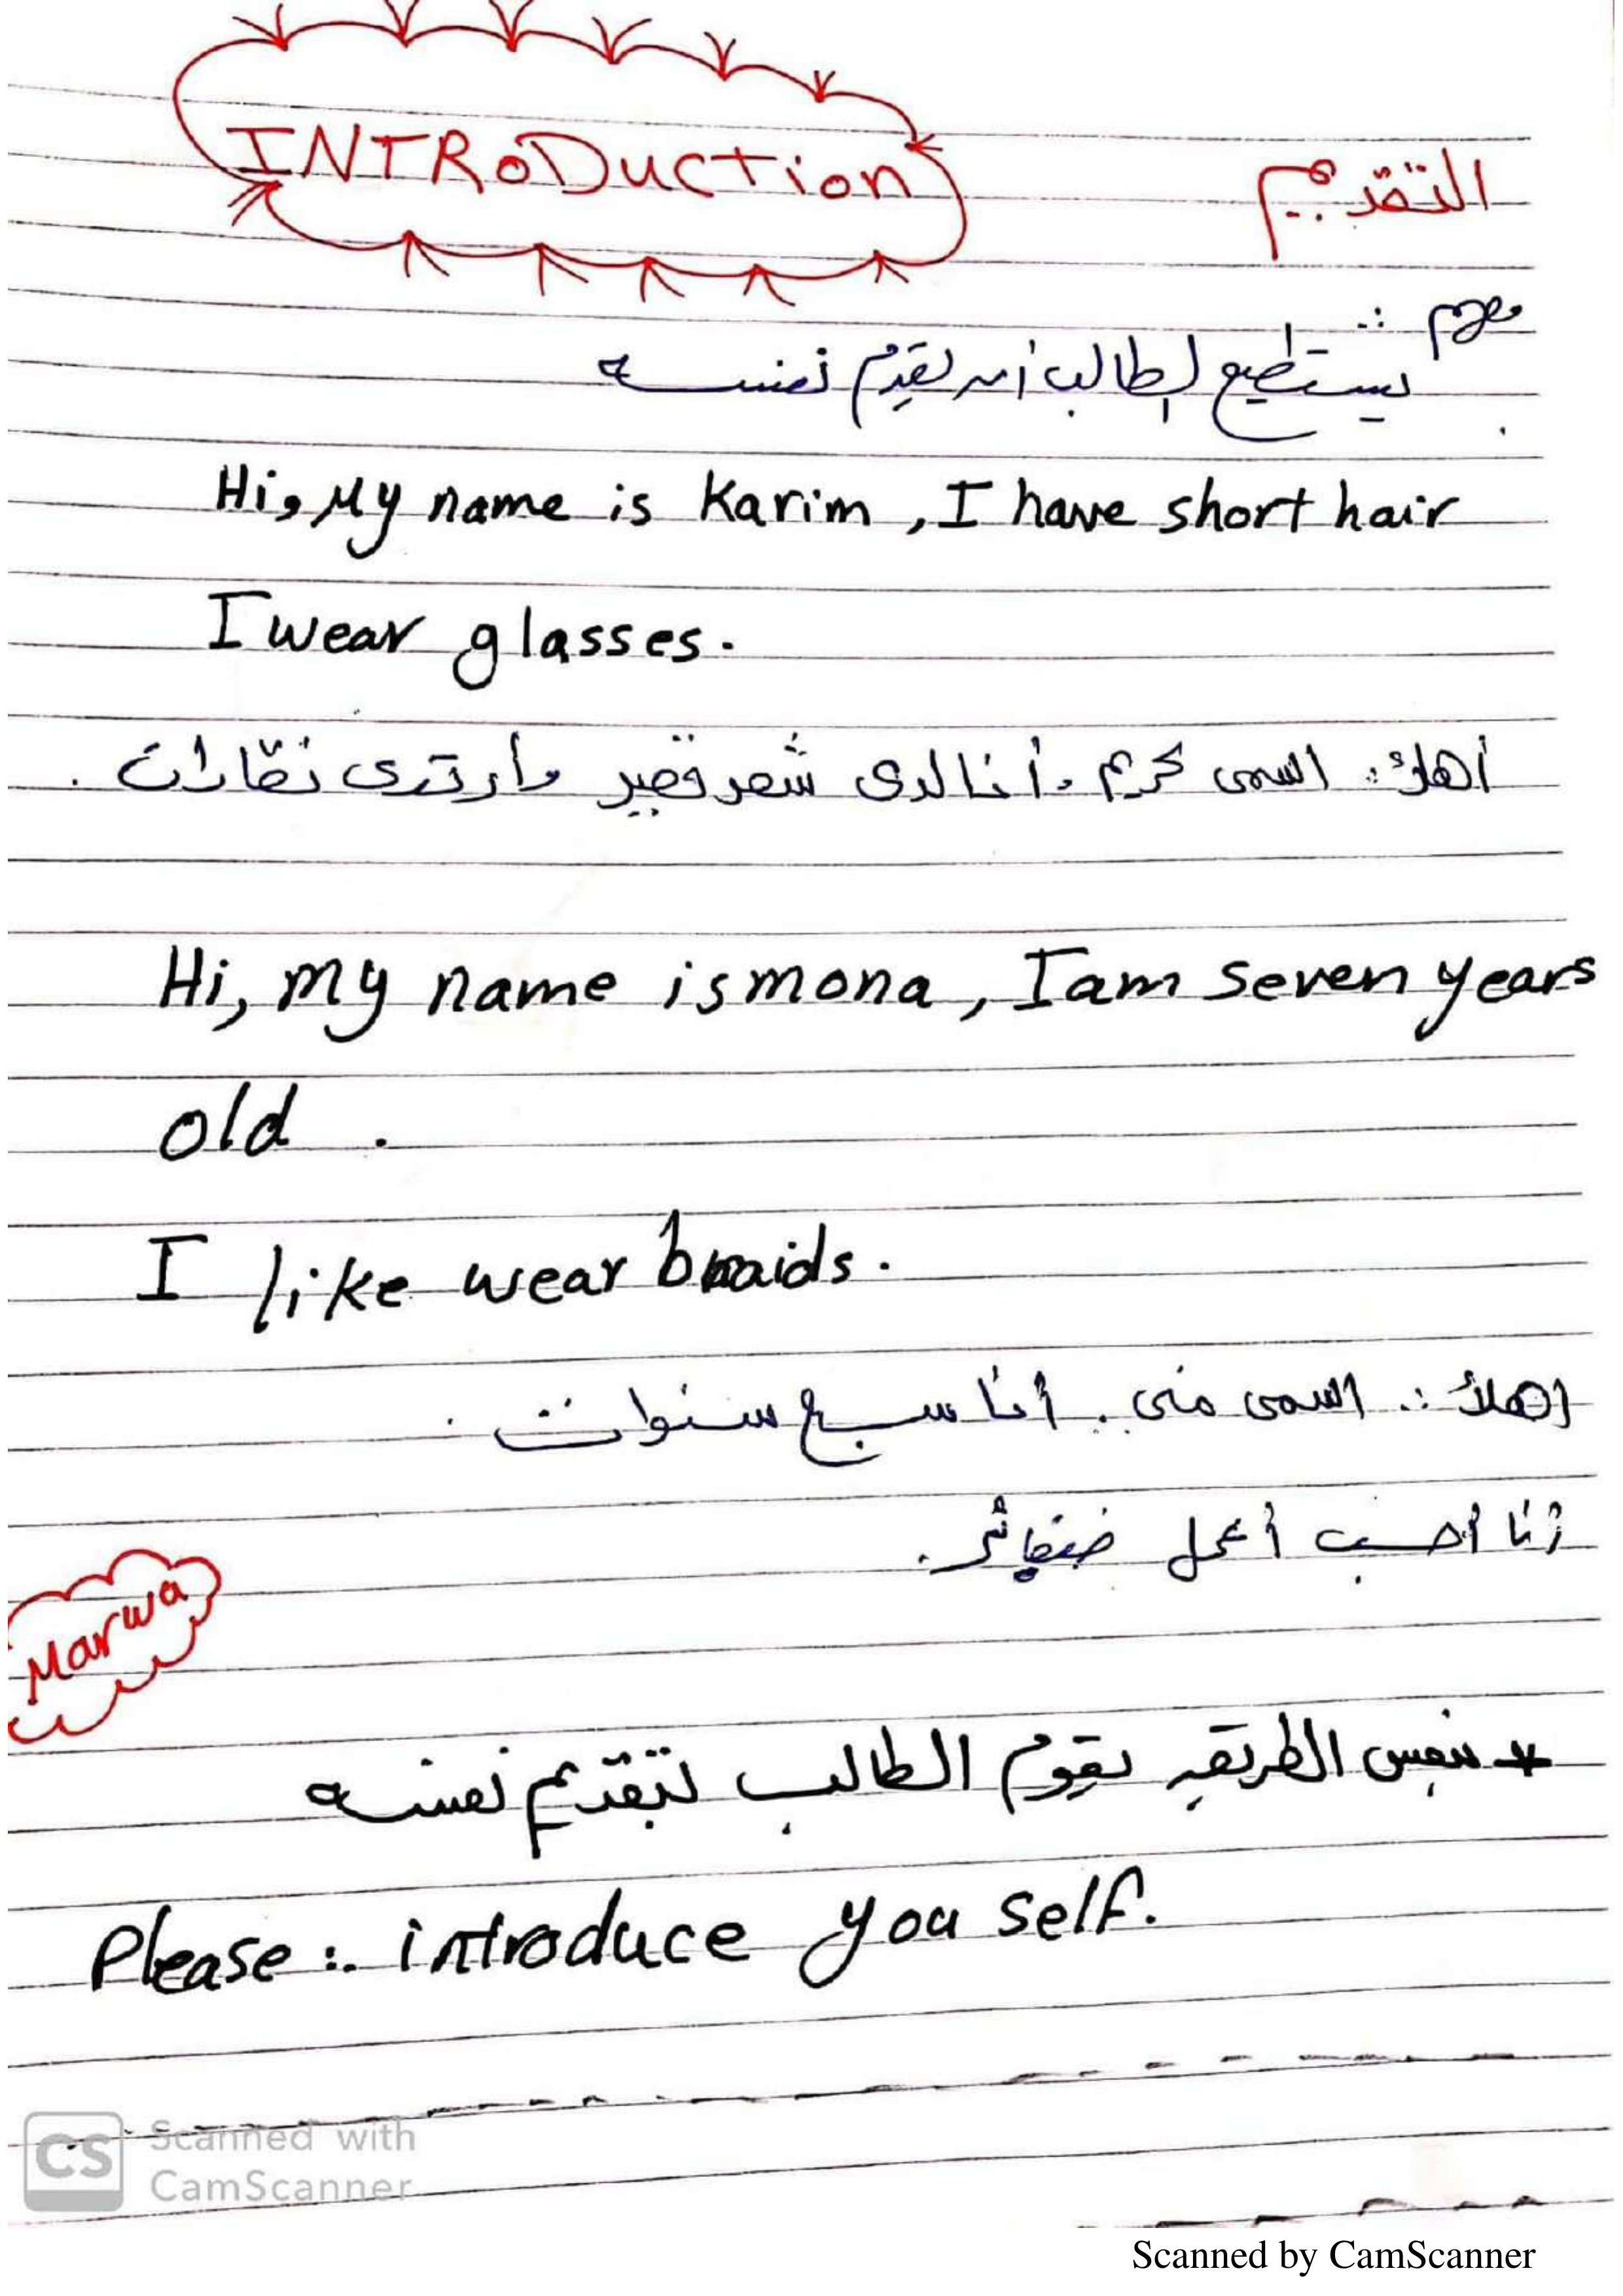 INTRODuction
التقديم
مهم :.
يستطيع الطالب أن يقدم نفسه
Hi, My name is Karim , I have short hair
I wear glasses.
أهلاً: اسمى كريم . أنا لدى شعر قصير وأرتدى نظارات .
Hi, my name is mona , I am seven years
old .
I like wear braids.
اهلاً :. اسمى منى . أنا سبع سنوات .
أنا أحب أعمل ضفائر .
Marwa
* بنفس الطريقه يقوم الطالب بتقديم نفسه
Please :. introduce you self.
CS Scanned with
CamScanner
Scanned by CamScanner